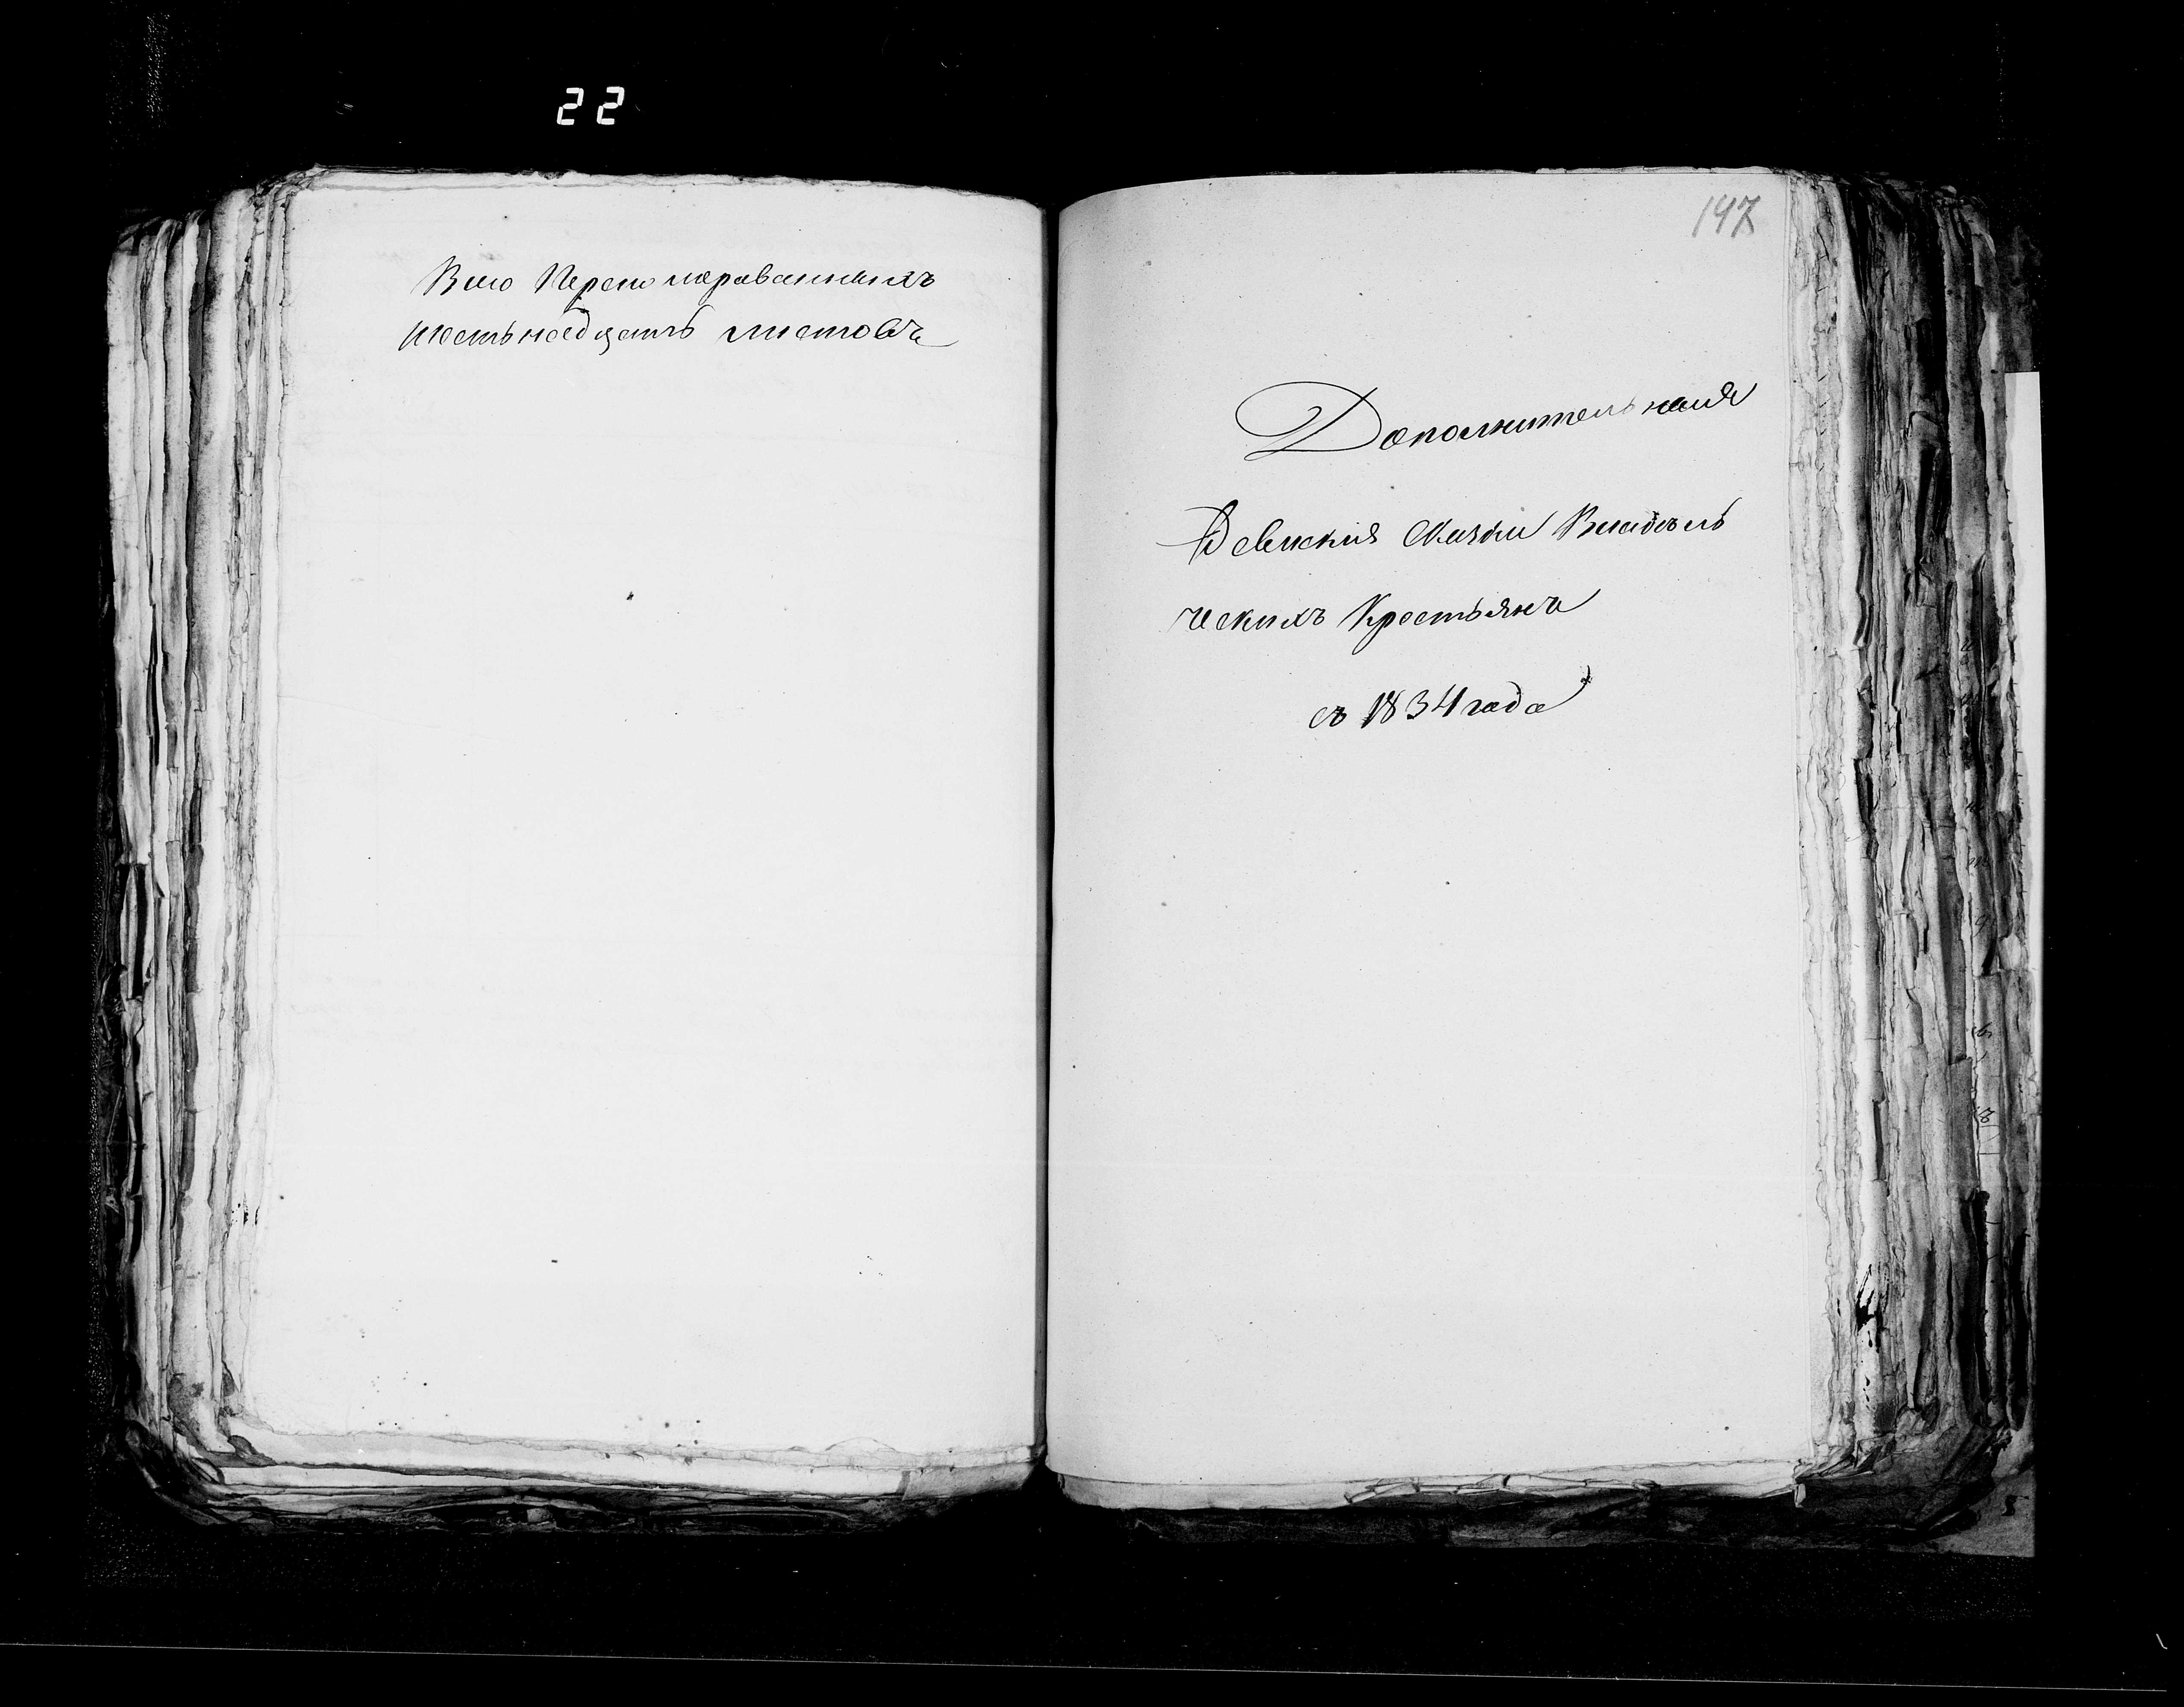 22
Всего Переномерованныхъ
шестьнадцать листовъ
147
Дополнительныя
Ревизкия Сказки Владѣль
ческихъ Крестьянъ
съ 1834 года